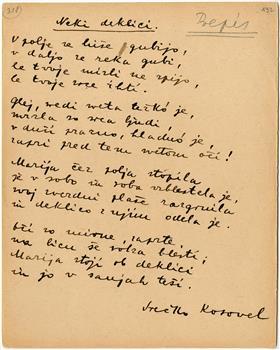 218)
Neki deklici. Prepis
V polje se hiše gubijo,
v daljo se reka gubi,
le tvoje misli ne spijo,
le tvoje srce ihti.
Glej, sveta težkó je,
mrzla so srca ljudi,
v duši prazno, hladnó je,
zapri pred tem svetom oči!
Marija čez polja stopila
je v sobo in soba vzblestela je,
svoj zvezdni plašč razgrnila
in deklico z njim odela je.
Oči so mirne, zaprte,
na licu še solza blesti;
Marija stoji ob deklici
in jo v sanjah teši.
Srečko Kosovel